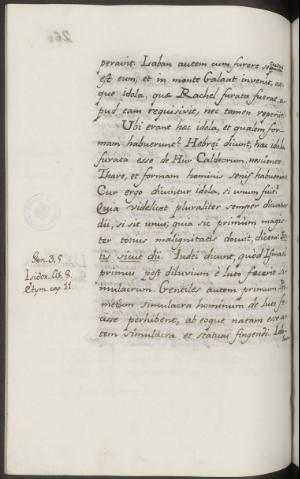 peravit. Laban autem cum furore secutus
est eum, et in monte Galaat invenit, at
que idola, quæ Rachel furata fuerat, a
pud eam requisivit, nec tamen reperit.
Ubi erant hæc idola, et qualem for
mam habuerunt? Hebræi diunt, hæc idola
furata esse de Hur Caldeorum, moriente
Thare, et formam hominis senis habuerunt.
Cur ergo diuntur idola, si unum fuit?
Quia videlicet pluraliter semper diuntur
dii, si sit unus; quia sic primum magis
ter totius malignitatis docuit, dicens: Eri
tis sicut dii. Judei diunt, quod Ismael
primus post diluvium e luto fecerit si
mulacrum. Gentiles autem primum Pro
metheum simulacra hominum de luto fe
cisse perhibent, ab eoque natam esse ar
tem simulacra et statuas fingendi.
Gen. 3, 5.
Isidor. Lib. 8.
Etym. cap. 11.